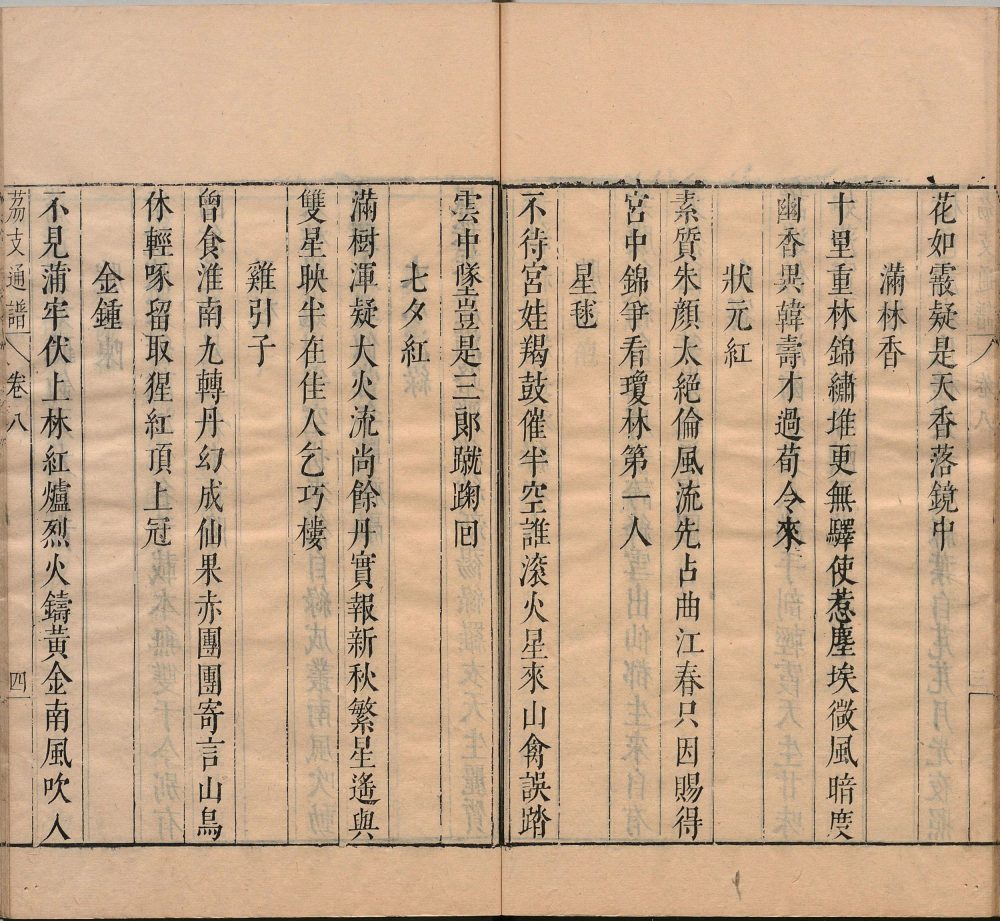 花如霰疑是天香落鏡中
滿林香
十里重林錦繡堆更無驛使惹塵埃微風暗度
幽香異韓壽才過荀令來
狀元紅
素質朱顏太絕倫風流先占曲江春只因賜得
宮中錦爭看瓊林第一人
星毬
不待宮娃羯鼓催半空誰滚火星來山禽誤踏
雲中墜豈是三郎蹴踘回
七夕紅
滿樹渾疑大火流尚餘丹實報新秋繁星遙與
雙星映半在佳人乞巧樓
雞引子
曾食淮南九轉丹幻成仙果赤團團寄言山鳥
休輕啄留取猩紅頂上冠
金鍾
不見蒲牢伏上林紅爐烈火鑄黃金南風吹入
荔支通譜 卷八 四